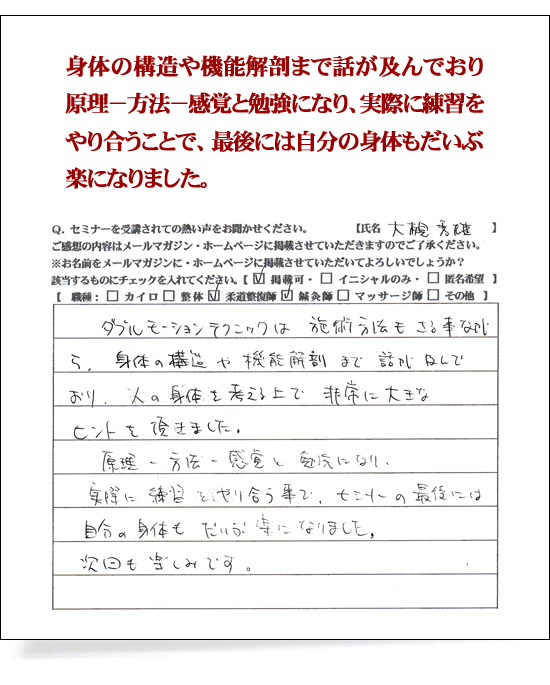 身体の構造や機能解剖まで話が及んでおり
原理－方法－感覚と勉強になり、実際に練習を
やり合うことで、最後には自分の身体もだいぶ
楽になりました。
Q. セミナーを受講されての熱い声をお聞かせください。 【氏名 大槻 秀雄 】
ご感想の内容はメールマガジン・ホームページに掲載させていただきますのでご了承ください。
※お名前をメールマガジンに・ホームページに掲載させていただいてよろしいでしょうか？
該当するものにチェックを入れてください。【 ☑ 掲載可・ □ イニシャルのみ・ □ 匿名希望 】
【 職種： □ カイロ □ 整体 ☑ 柔道整復師 ☑ 鍼灸師 □ マッサージ師 □ その他 】
ダブルモーションテクニックは 施術方法もさる事なが
ら、身体の構造や機能解剖まで話が及んで
おり、人の身体を考える上で 非常に大きな
ヒントを頂きました。
原理－方法－感覚と勉強になり、
実際に練習をやり合う事で、セミナーの最後には
自分の身体もだいぶ楽になりました。
次回も楽しみです。